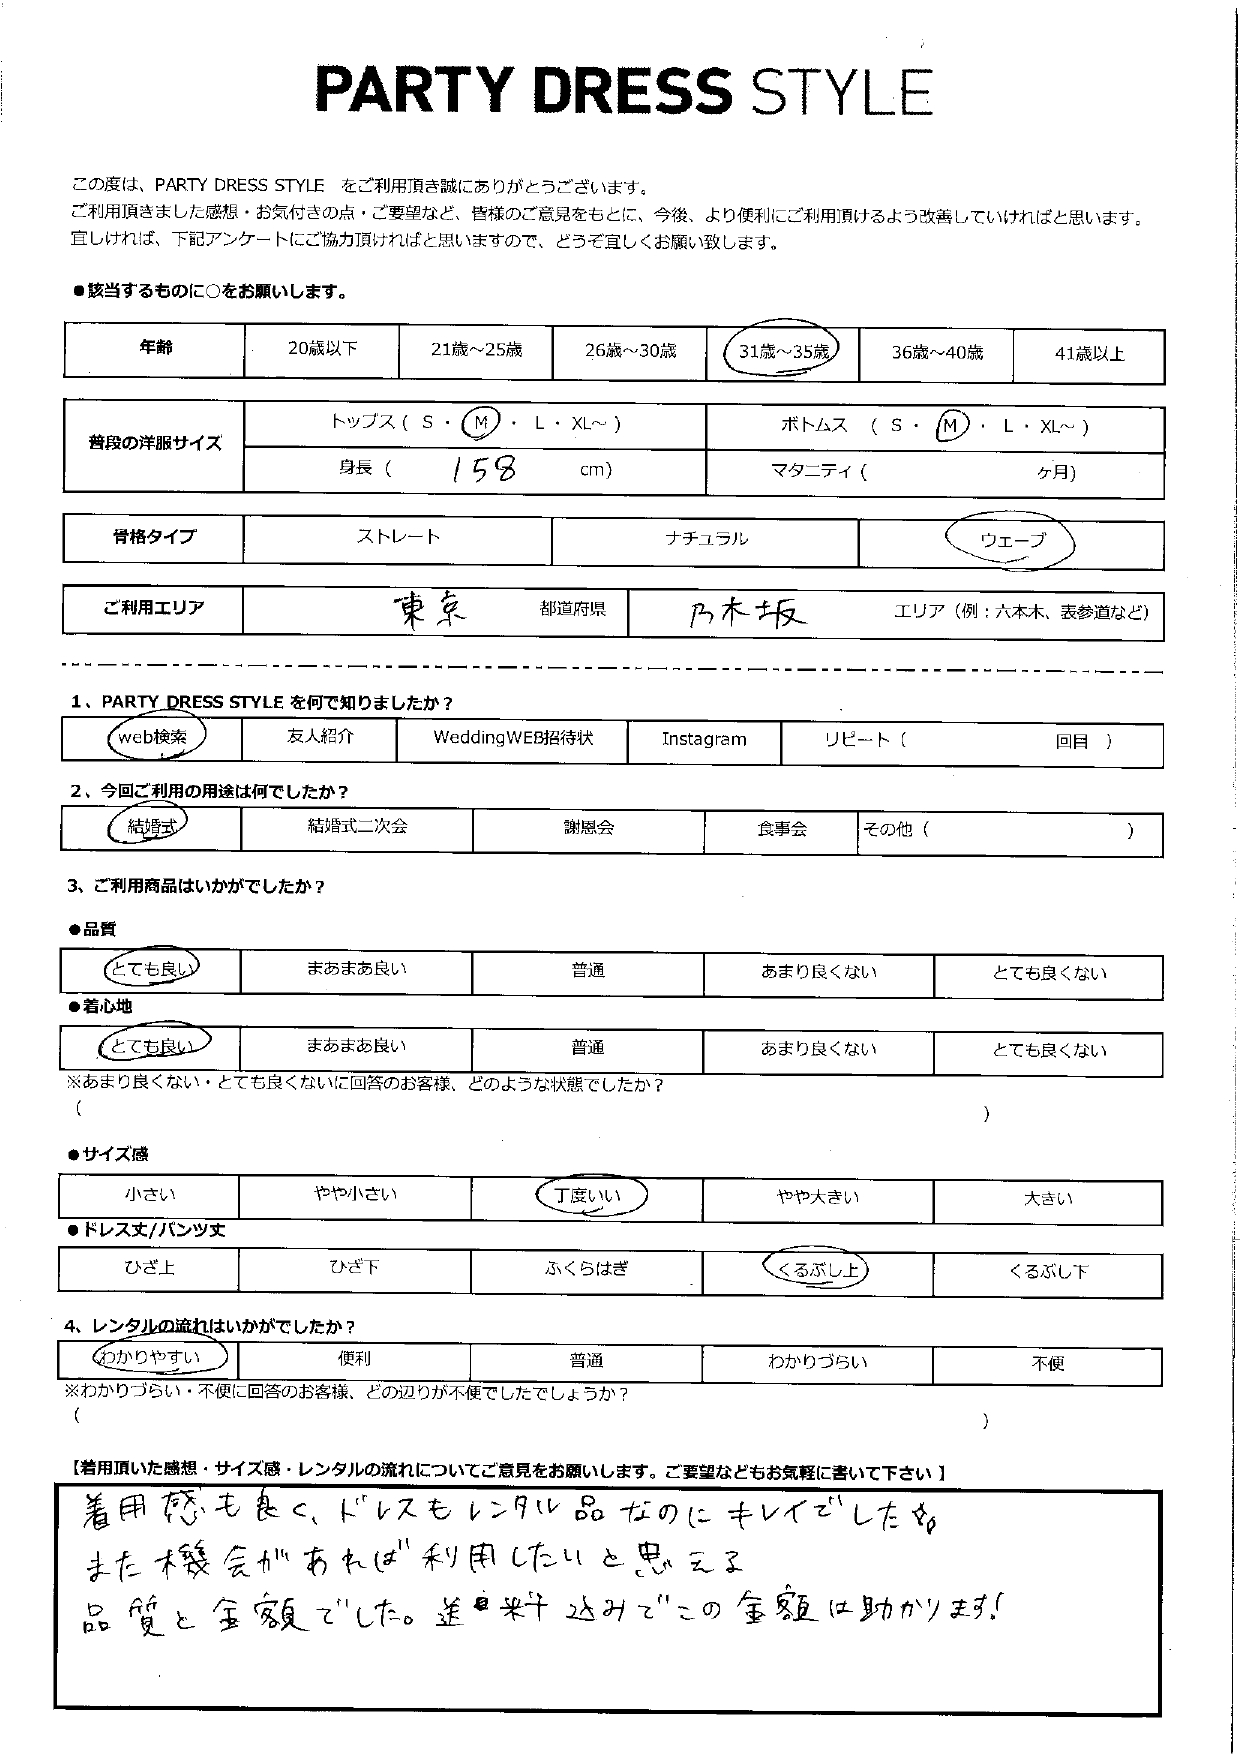 PARTY DRESS STYLE
この度は、PARTY DRESS STYLE をご利用頂き誠にありがとうございます。
ご利用頂きました感想・お気付きの点・ご要望など、皆様のご意見をもとに、今後、より便利にご利用頂けるよう改善していければと思います。
宜しければ、下記アンケートにご協力頂ければと思いますので、どうぞ宜しくお願い致します。
●該当するものに○をお願いします。
年齢 20歳以下 21歳～25歳 26歳～30歳 31歳～35歳 36歳～40歳 41歳以上
普段の洋服サイズ トップス ( S ・ M ・ L ・ XL～ ) ボトムス ( S ・ M ・ L ・ XL～ )
身長 ( 158 cm) マタニティ ( ヶ月)
骨格タイプ ストレート ナチュラル ウェーブ
ご利用エリア 東京 都道府県 乃木坂 エリア（例：六本木、表参道など）
1、PARTY DRESS STYLE を何で知りましたか？
web検索 友人紹介 WeddingWEB招待状 Instagram リピート ( 回目 )
2、今回ご利用の用途は何でしたか？
結婚式 結婚式二次会 謝恩会 食事会 その他 ( )
3、ご利用商品はいかがでしたか？
●品質
とても良い まあまあ良い 普通 あまり良くない とても良くない
●着心地
とても良い まあまあ良い 普通 あまり良くない とても良くない
※あまり良くない・とても良くないに回答のお客様、どのような状態でしたか？
( )
●サイズ感
小さい やや小さい 丁度いい やや大きい 大きい
●ドレス丈/パンツ丈
ひざ上 ひざ下 ふくらはぎ くるぶし上 くるぶし下
4、レンタルの流れはいかがでしたか？
わかりやすい 便利 普通 わかりづらい 不便
※わかりづらい・不便に回答のお客様、どの辺りが不便でしたでしょうか？
( )
【着用頂いた感想・サイズ感・レンタルの流れについてご意見をお願いします。ご要望などもお気軽に書いて下さい】
着用感も良く、ドレスもレンタル品なのにキレイでした
また機会があれば利用したいと思える
品質と金額でした。送料込みでこの金額は助かります!